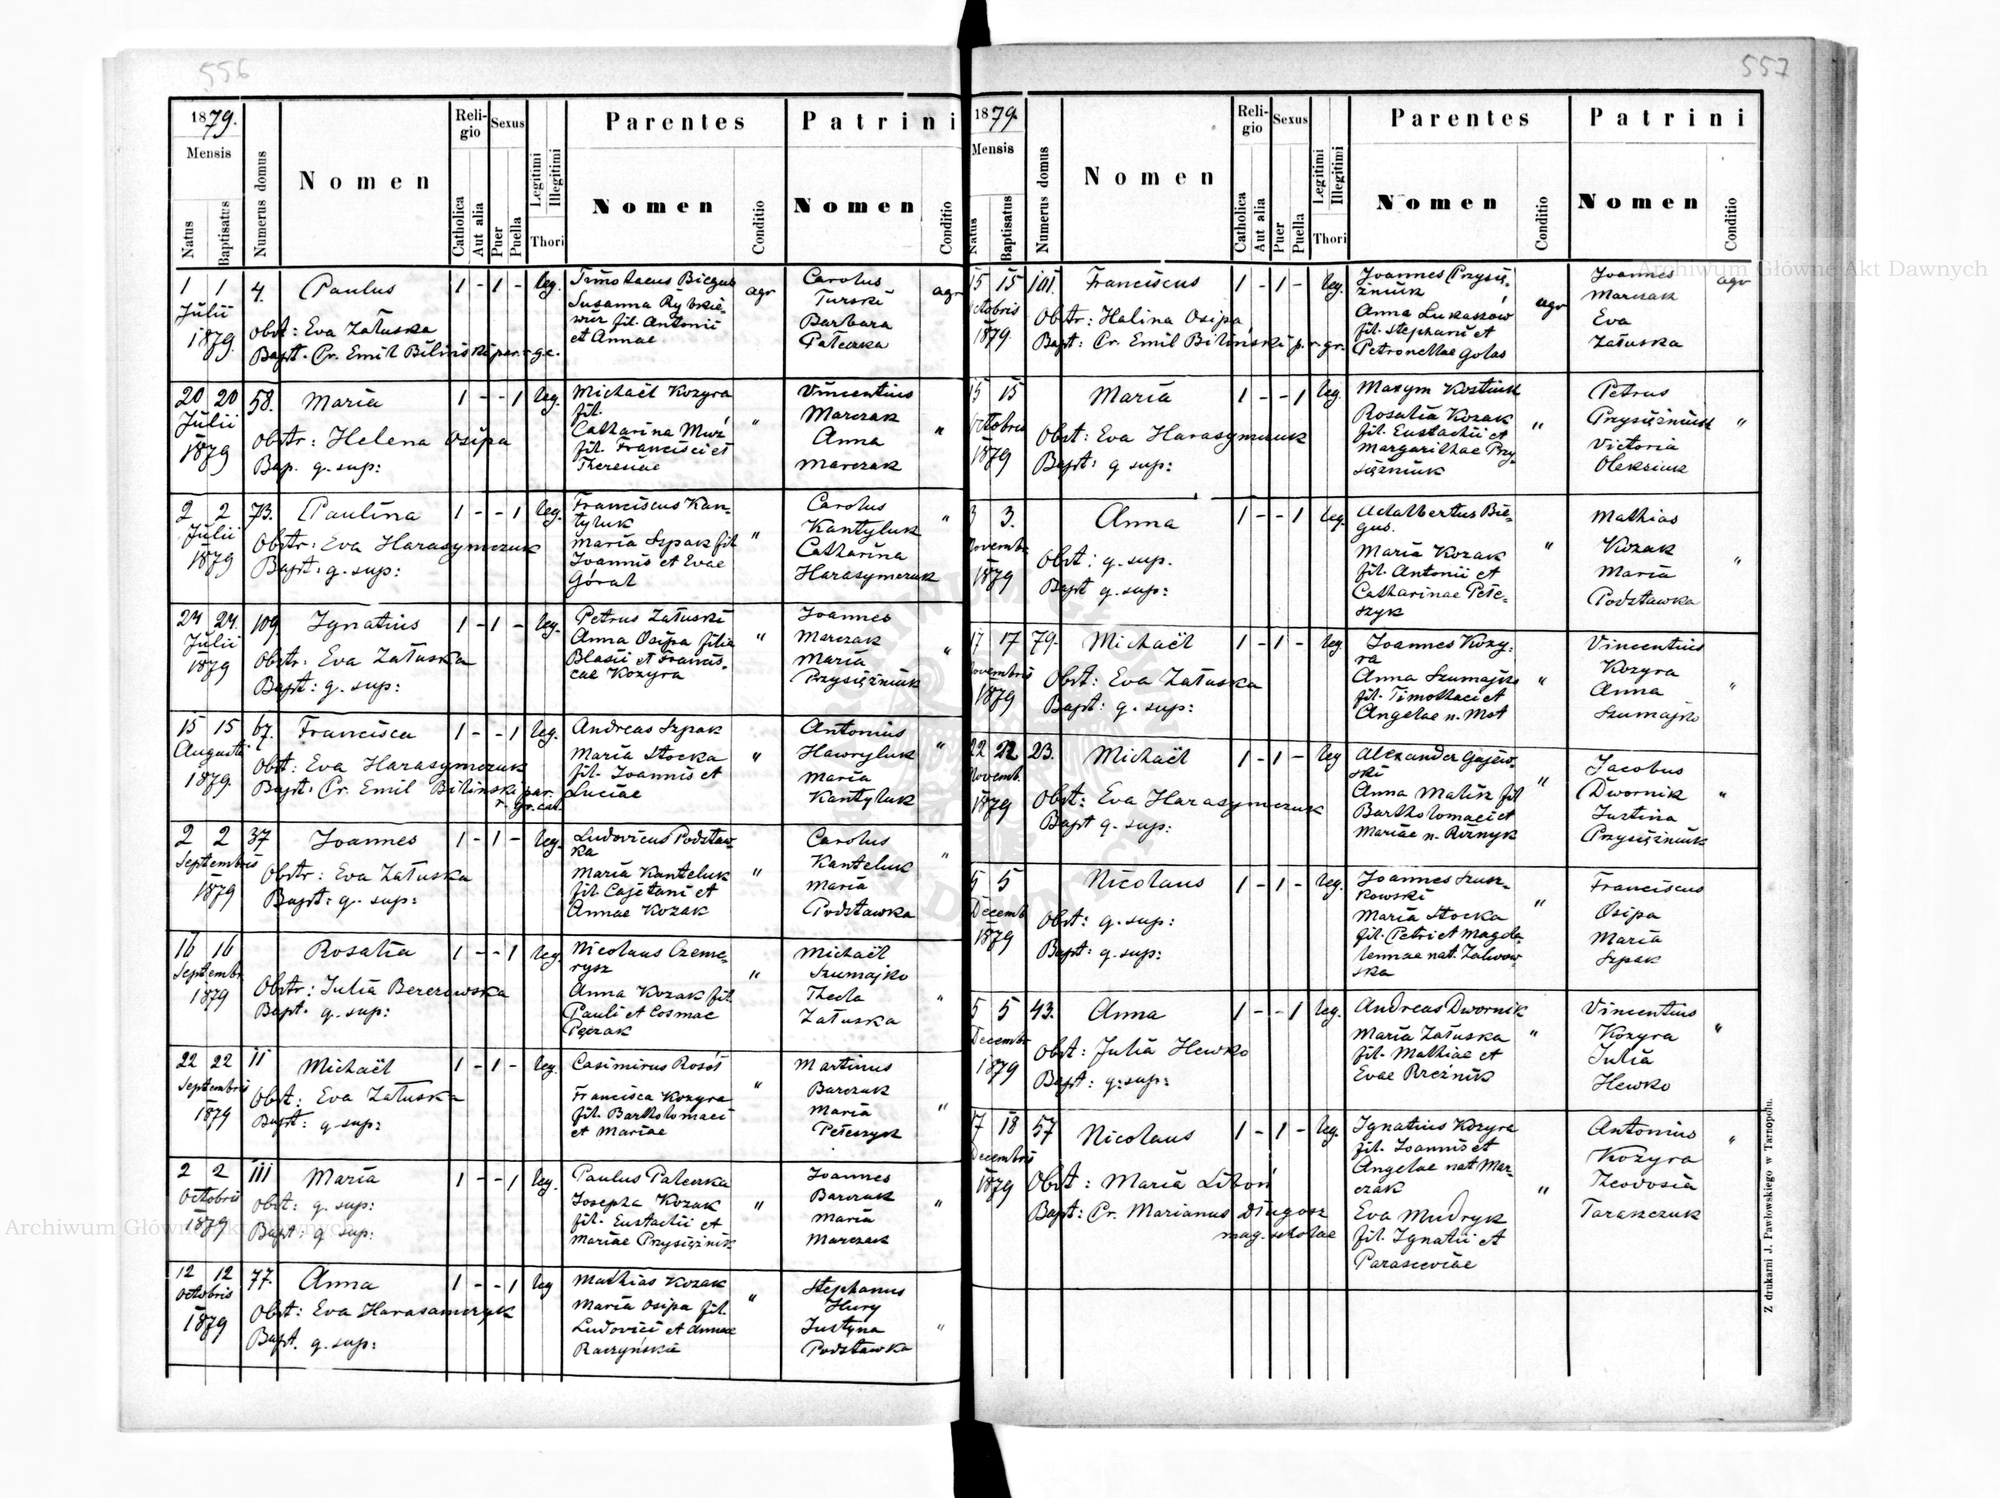 556
1879.
Mensis
Natus
Baptisatus
Numerus domus
Nomen
Religio
Catholica
Aut alia
Sexus
Puer
Puella
Legitimi
Illegitimi
Thori
Parentes
Nomen
Conditio
Patrini
Nomen
Conditio
1 1 4. Paulus 1 - 1 - leg.
Julii
1879.
Obst: Eva Załuska
Bapt. Cr. Emil Biliński par. r. gc.
Timothaeus Biegus
Susanna Rybkie-
wicz fil. Antonii
et Annae
agr
Carolus
Turski
Barbara
Pateczka
agr
20 20 58. Maria 1 - - 1 leg.
Julii
1879
Obstr: Helena Osipa
Bap. q. sup:
Michaël Kozyra
fil.
Catharina
fil. Francisci et
Theresiae
"
Vincentius
Marczak
Anna
Marczak
"
2 2 73. Paulina 1 - - 1 leg.
Julii
1879
Obstr: Eva Harasymczuk
Bapt: q. sup:
Franciscus Kan-
tyluk
Maria Szpak fil
Joannis et Evae
Góral
"
Carolus
Kantyluk
Catharina
Harasymczuk
"
24 24. 109 Ignatius 1 - 1 - leg.
Julii
1879
Obstr: Eva Załuska
Bapt: q. sup:
Petrus Załuski
Anna Osipa filia
Blasii et Francis-
cae Kozyra
"
Joannes
Marczak
Maria
Przysiężniuk
"
15 15 67. Francisca 1 - - 1 leg.
Augusti
1879.
Obst: Eva Harasymczuk
Bapt: Cr. Emil Biliński par.
r. gr. cat.
Andreas Szpak
Maria Stocka
fil. Joannis et
Luciae
"
Antonius
Hawryluk
Maria
Kantyluk
"
2 2 37 Joannes 1 - 1 - leg.
Septembris
1879
Obstr: Eva Załuska
Bapt: q. sup:
Ludovicus Podstaw-
ka
Maria Kanteluk
fil. Cajetani et
Annae Kozak
"
Carolus
Kanteluk
Maria
Podstawka
"
16 16 Rosalia 1 - - 1 leg
Septembr.
1879
Obstr: Julia Berezowska
Bapt. q. sup:
Nicolaus Czeme-
rysz
Anna Kozak fil.
Pauli et Cosmae
Pęczak
"
Michaël
Szumajko
Thecla
Załuska
"
22 22 11 Michaël 1 - 1 - leg.
Septembris
1879
Obst: Eva Załuska
Bapt: q. sup:
Casimirus Rosół
Francisca Kozyra
fil. Bartholomaei
et Mariae
"
Martinus
Barczuk
Maria
Peteszyk
"
2 2 111 Maria 1 - - 1 leg.
Octobris
1879
Obst: q. sup:
Bapt: q sup:
Paulus Pateczka
Josepha Kozak
fil. Eustachii et
Mariae Przysiężniuk
"
Joannes
Barczuk
Maria
Marczak
"
12 12 77. Anna 1 - - 1 leg
Octobris
1879
Obst: Eva Harasamczyk
Bapt. q. sup:
Mathias Kozak
Maria Osipa fil.
Ludovici et Annae
Raczyńskie
"
Stephanus
Hury
Justyna
Podstawka
"
557
1879.
Mensis
Natus
Baptisatus
Numerus domus
Nomen
Religio
Catholica
Aut alia
Sexus
Puer
Puella
Legitimi
Illegitimi
Thori
Parentes
Nomen
Conditio
Patrini
Nomen
Conditio
15 15 101. Franciscus 1 - 1 - leg.
Octobris
1879.
Obstr: Halina Osipa
Bapt: Cr. Emil Biliński p. r. gr.
Joannes Przysię-
żniuk
Anna Lukaszów
fil. Stephani et
Petronellae Golas
agr
Joannes
Marczak
Eva
Załuska
agr
15 15 Maria 1 - - 1 leg.
Octobris
1879
Obst: Eva Harasymczuk
Bapt: q sup:
Maxym Kostiuk
Rosalia Kozak
fil. Eustachii et
Margarithae Przy-
siężniuk
"
Petrus
Przysiężniuk
Victoria
Olekziuk
"
3 3. Anna 1 - - 1 leg.
Novembr.
1879
Obst: q. sup.
Bapt q. sup:
Adalbertus Bie-
gus.
Maria Kozak
fil. Antonii et
Catharinae Pete-
szyk
"
Mathias
Kozak
Maria
Podstawka
"
17 17 79. Michaël 1 - 1 - leg
Novembris
1879
Obst: Eva Załuska
Bapt: q. sup:
Joannes Kozy-
ra
Anna Szumajko
fil. Timothaei et
Angelae n. Mot
"
Vincentius
Kozyra
Anna
Szumajko
"
22 22 23. Michaël 1 - 1 - leg
Novemb.
1879
Obst: Eva Harasymczuk
Bapt q. sup:
Alexander Gajew-
ski
Anna Malik fil
Bartholomaei et
Mariae n. Riznyk
"
Jacobus
Dwornik
Justina
Przysiężniuk
"
5 5 Nicolaus 1 - 1 - leg.
Decemb
1879
Obst: q. sup:
Bapt: q. sup:
Joannes Szusz-
kowski
Maria Stocka
fil. Petri et Magda-
lennae nat. Zalwow-
ska
"
Franciscus
Osipa
Maria
Szpak
5 5 43. Anna 1 - - 1 leg.
Decembr
1879
Obst: Julia Hewko
Bapt: q: sup:
Andreas Dwornik
Maria Załuska
fil. Mathiae et
Evae Rzeźnik
"
Vincentius
Kozyra
Julia
Hewko
"
17 18 57 Nicolaus 1 - 1 - leg.
Decembris
1879
Obst: Maria Liboń
Bapt: Cr. Marianus Długosz
mag. scholae
Ignatius Kozyra
fil. Joannis et
Angelae nat Mar-
czak
Eva Mudryk
fil. Ignatii et
Parasceviae
"
Antonius
Kozyra
Theodosia
Taraszczuk
"
Z drukarni J. Pawłowskiego w Tarnopolu.
Archiwum Główne Akt Dawnych
Archiwum Główne Akt Dawnych